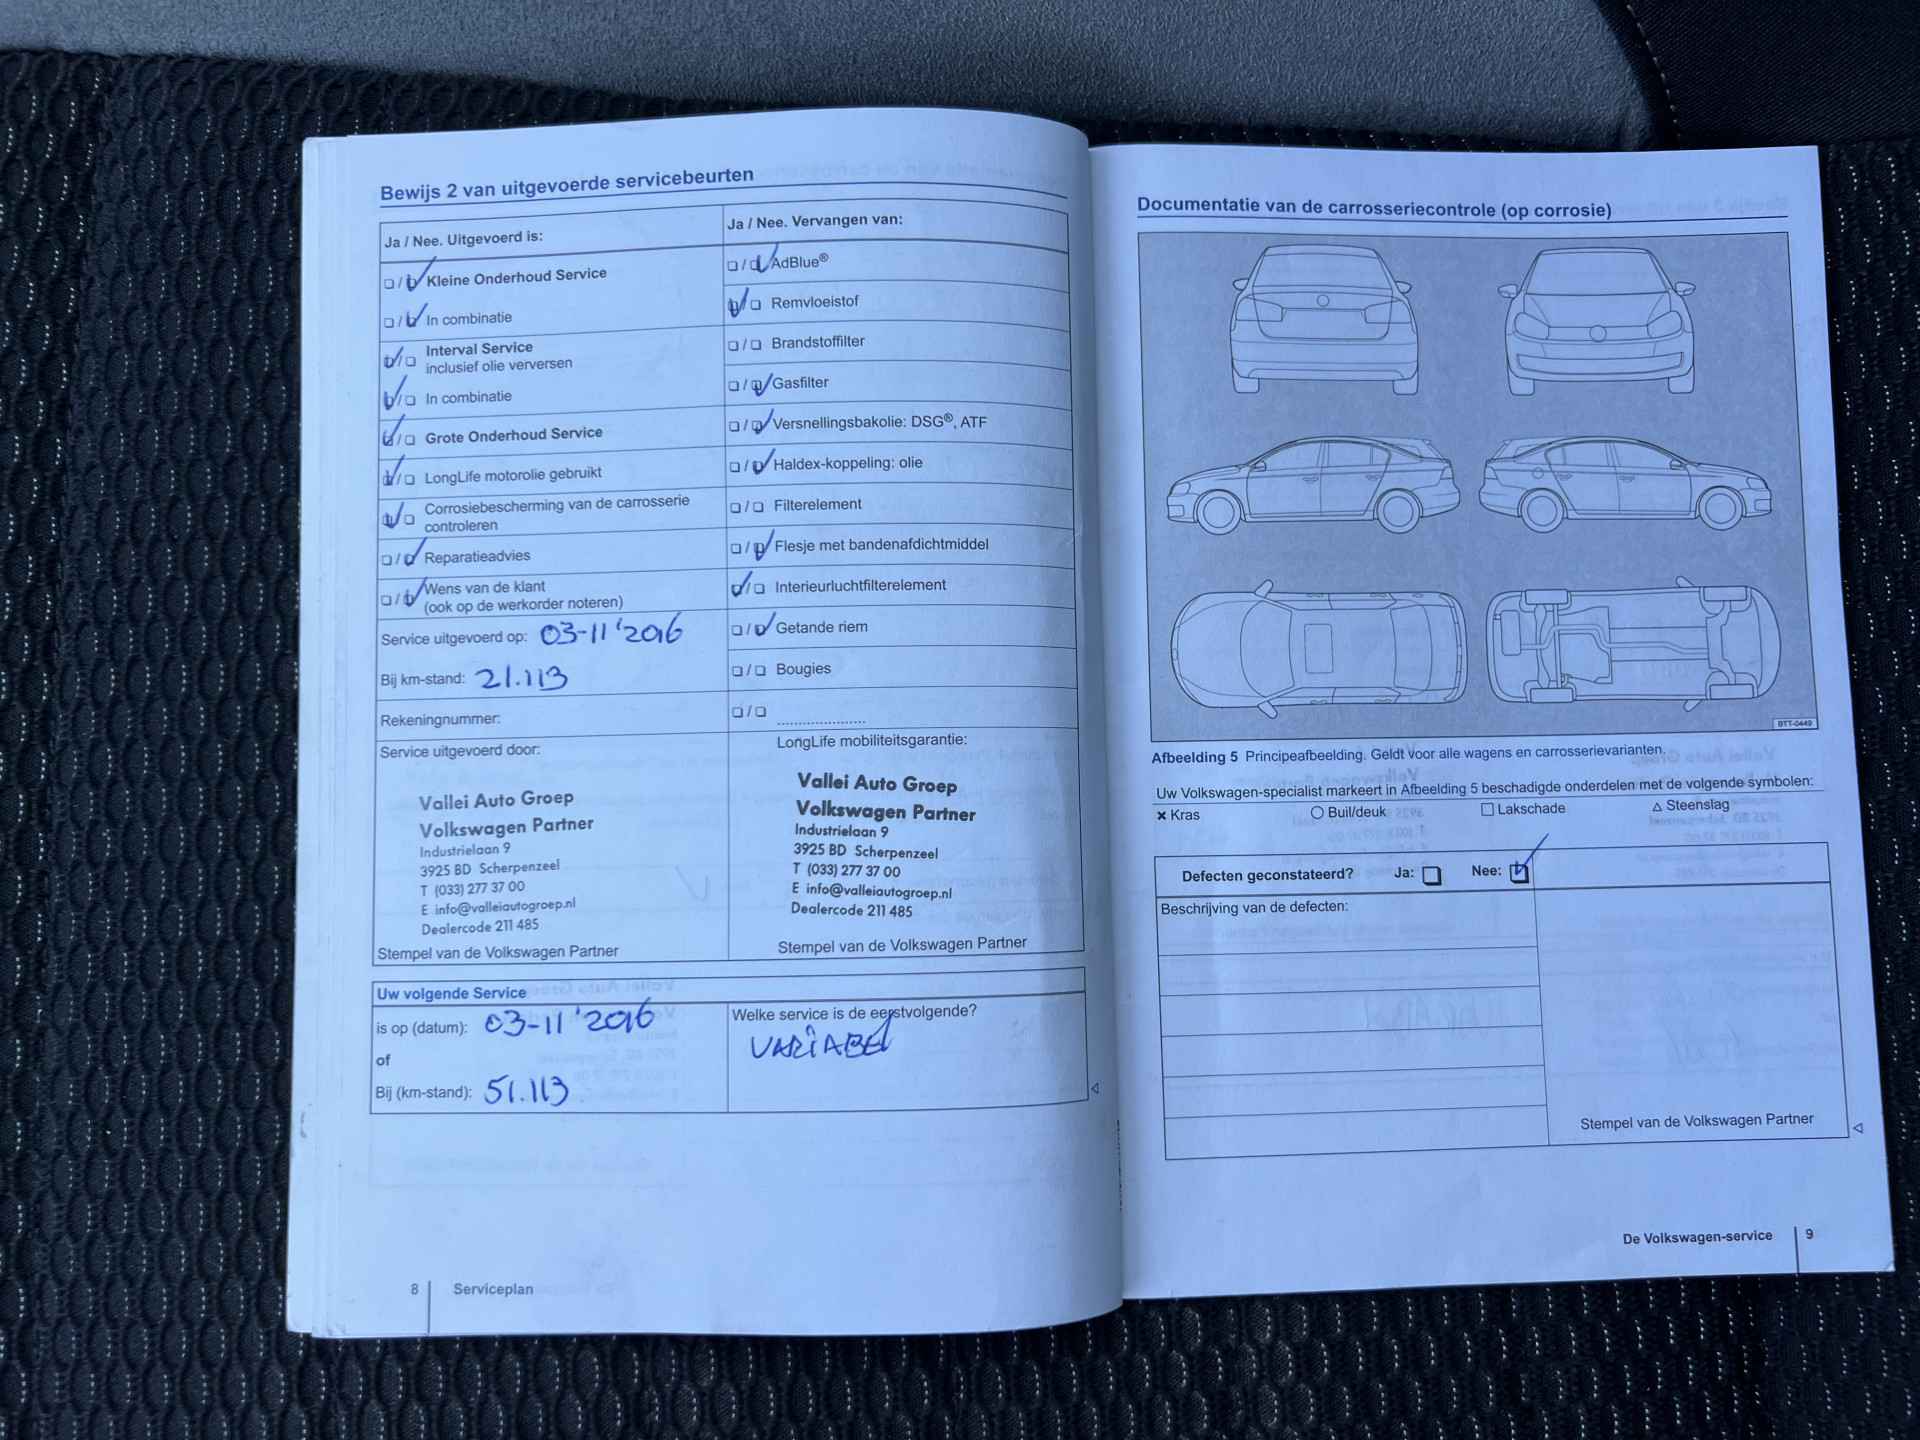 Bewijs 2 van uitgevoerde servicebeurten
Ja / Nee. Uitgevoerd is:
Kleine Onderhoud Service
In combinatie
Interval Service
inclusief olie verversen
In combinatie
Grote Onderhoud Service
LongLife motorolie gebruikt
Corrosiebescherming van de carrosserie
controleren
Reparatieadvies
Wens van de klant
(ook op de werkorder noteren)
Service uitgevoerd op: 03-11'2016
Bij km-stand: 21.113
Rekeningnummer:
Service uitgevoerd door:
Vallei Auto Groep
Volkswagen Partner
Industrielaan 9
3925 BD Scherpenzeel
T (033) 277 37 00
E info@valleiautogroep.nl
Dealercode 211 485
Stempel van de Volkswagen Partner
Ja / Nee. Vervangen van:
AdBlue®
Remvloeistof
Brandstoffilter
Gasfilter
Versnellingsbakolie: DSG®, ATF
Haldex-koppeling: olie
Filterelement
Flesje met bandenafdichtmiddel
Interieurluchtfilterelement
Getande riem
Bougies
LongLife mobiliteitsgarantie:
Vallei Auto Groep
Volkswagen Partner
Industrielaan 9
3925 BD Scherpenzeel
T (033) 277 37 00
E info@valleiautogroep.nl
Dealercode 211 485
Stempel van de Volkswagen Partner
Uw volgende Service
is op (datum): 03-11'2016
of
Bij (km-stand): 51.113
Welke service is de eerstvolgende?
VARIABEL
8 Serviceplan
Documentatie van de carrosseriecontrole (op corrosie)
BTT-0449
Afbeelding 5 Principeafbeelding. Geldt voor alle wagens en carrosserievarianten.
Uw Volkswagen-specialist markeert in Afbeelding 5 beschadigde onderdelen met de volgende symbolen:
× Kras ○ Buil/deuk □ Lakschade △ Steenslag
Defecten geconstateerd? Ja: Nee:
Beschrijving van de defecten:
Stempel van de Volkswagen Partner
De Volkswagen-service 9